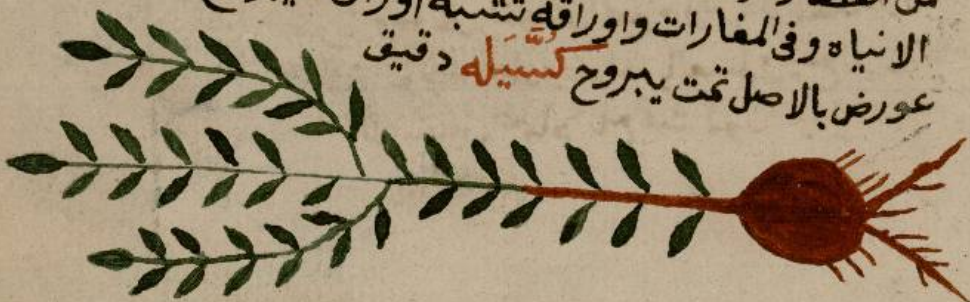 من
الانياه وفى المغارات واوراقه تشبه اوراق
عورض بالاصل تمت يبروح كسَّيَله دقيق